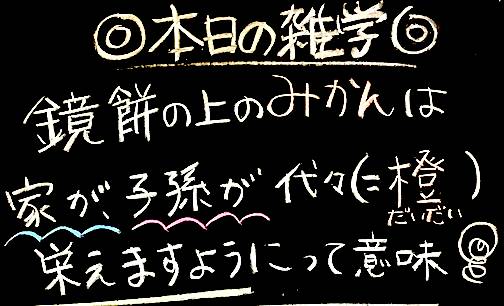 ◎本日の雑学◎
鏡餅の上のみかんは
家が、子孫が代々(=橙)
だいだい
栄えますようにって意味